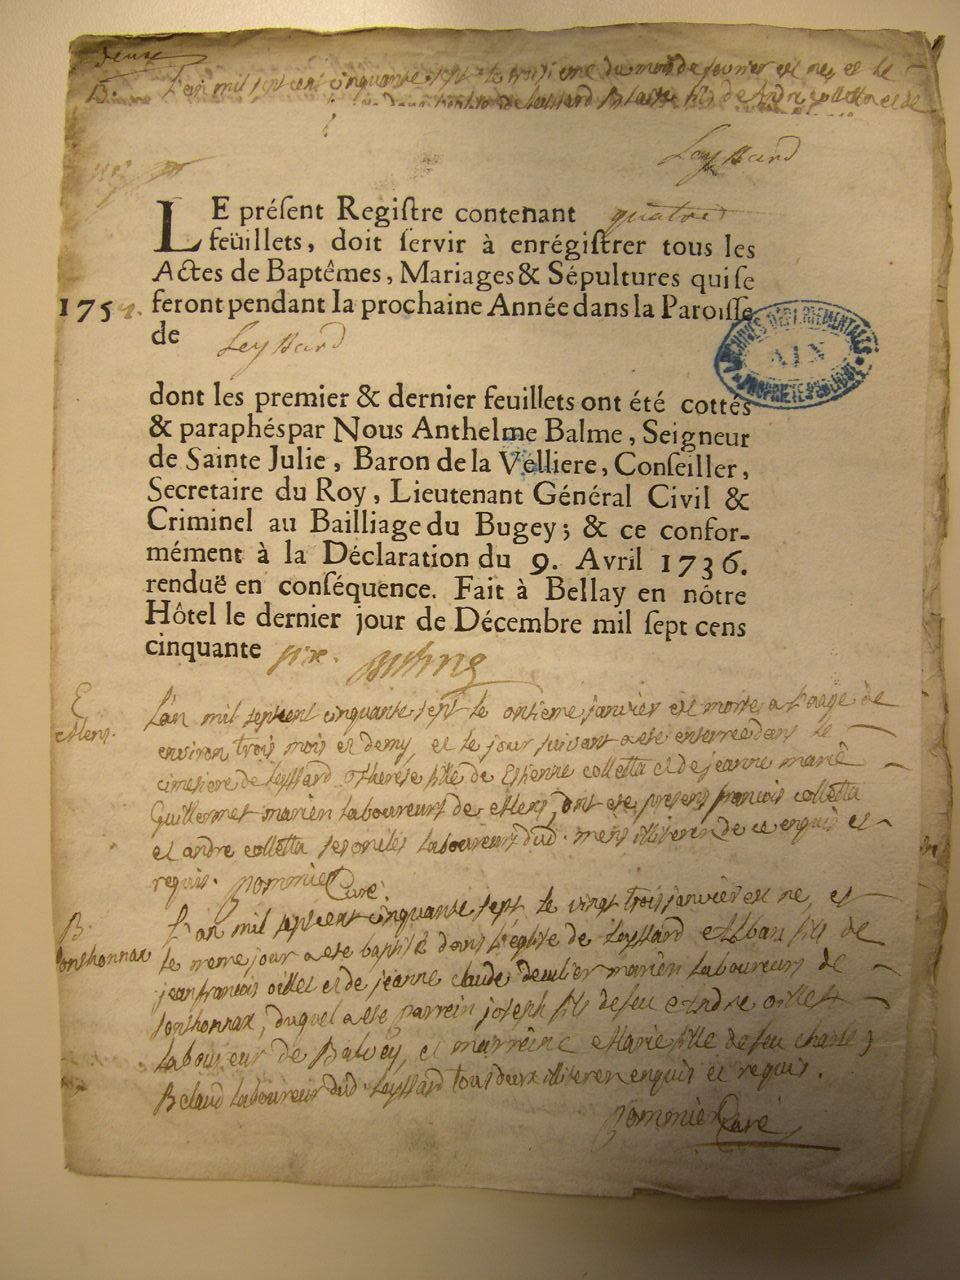 L'an mil sept cent cinquante sept le troisieme du mois de fevrier est ne, et le
Leyssard
LE préſent Regiſtre contenant quatre
feüillets, doit ſervir à enrégiſtrer tous les
Actes de Baptêmes, Mariages & Sépultures qui ſe
175 feront pendant la prochaine Année dans la Paroiſſe
de Leyssard
ARCHIVES DÉPARTEMENTALES
AIN
PROPRIÉTÉ PUBLIQUE
dont les premier & dernier feuillets ont été cottés
& paraphés par Nous Anthelme Balme, Seigneur
de Sainte Julie, Baron de la Velliere, Conſeiller,
Secretaire du Roy, Lieutenant Général Civil &
Criminel au Bailliage du Bugey; & ce confor-
mément à la Déclaration du 9. Avril 1736.
renduë en conſéquence. Fait à Bellay en nôtre
Hôtel le dernier jour de Décembre mil ſept cens
cinquante six.
L'an mil septcent cinquante sept le onsieme janvier est morte a l'aage de
environ trois mois et demy, et le jour suivant a ete enterree dans le
cimetiere de Leyssard therese fille de Estienne colletta et de jeanne marie
Guillermet marien laboureurs de Mens, ont ete presens francois colletta
et andre colletta ses oncles laboureurs dud. mens illiteren de ce enquis et
requis. pommier Curé.
B.
L'an mil septcent cinquante sept le vingt trois janvier est ne, et
le meme jour a ete baptisé dans l'eglise de Leyssard Alban fils de
jean francois oillet et de jeanne claude mariens laboureurs de
sonthonnax, duquel a ete parrein joseph fils de feu Andre oillet
laboureur de Balvey, et marreine Marie fille de feu charle
Belaud laboureur dud. Leyssard tous deux illiteren enquis et requis.
pommier Curé